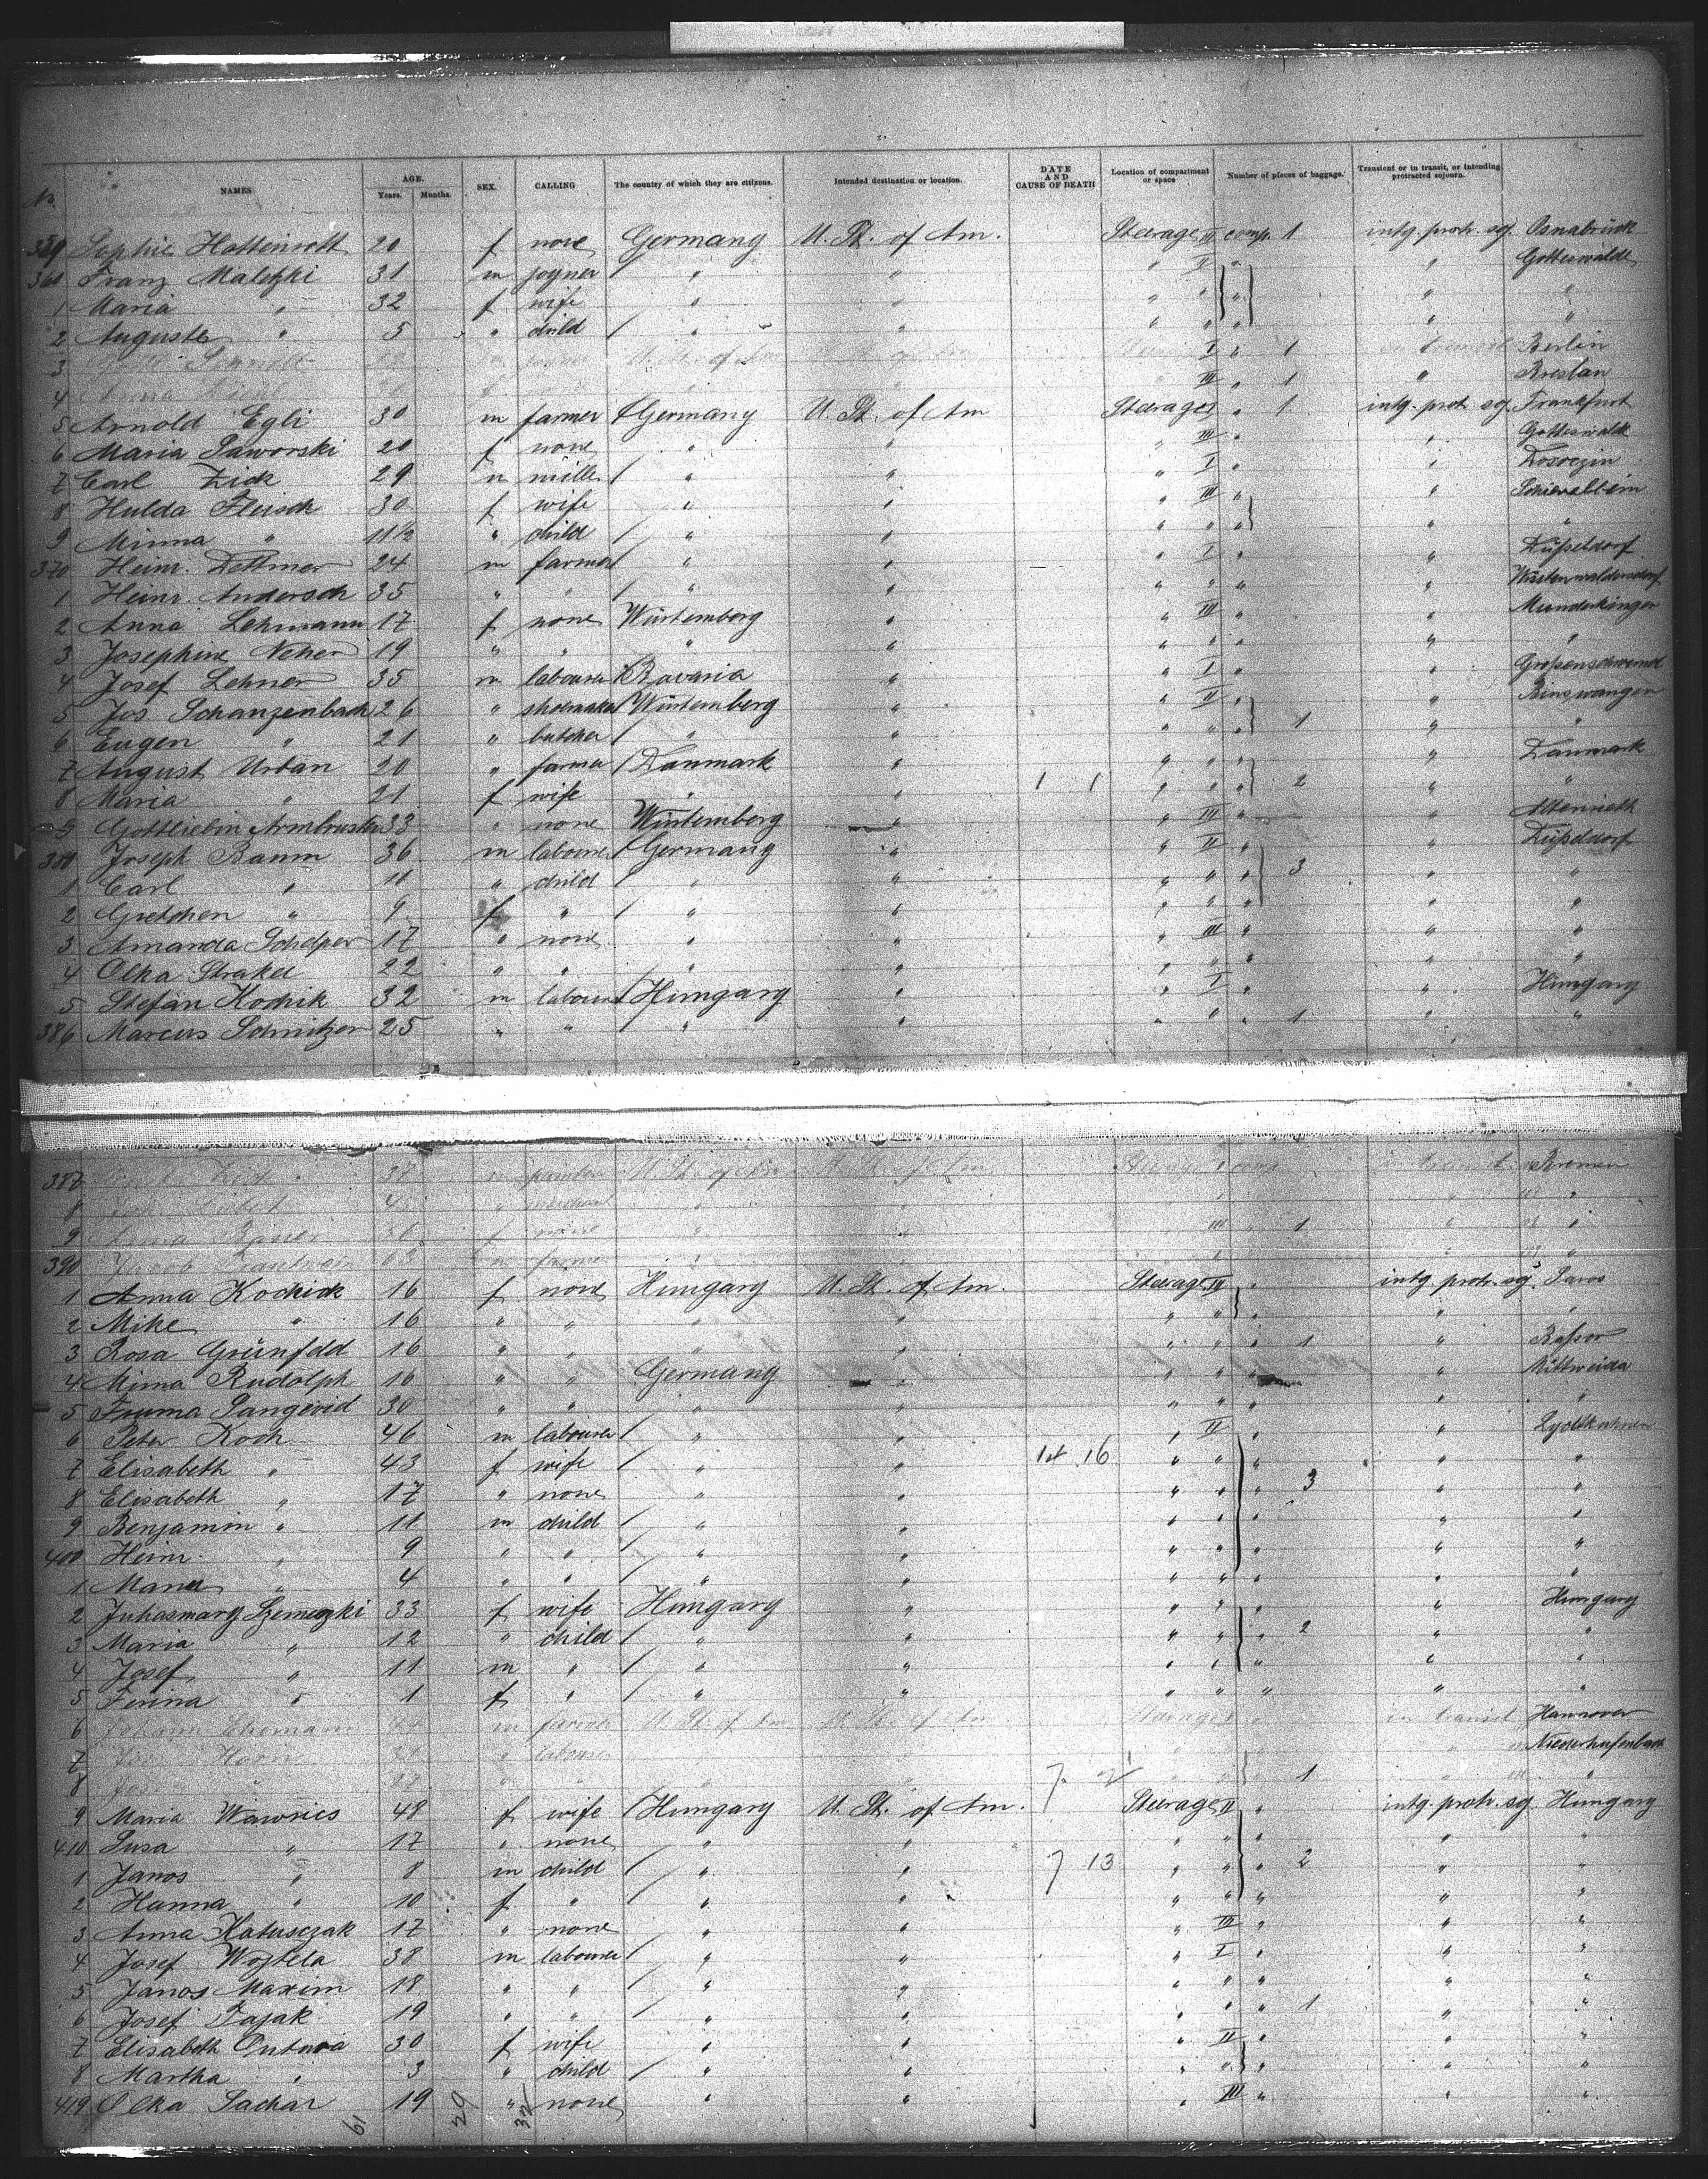 No. NAMES AGE. Years. Months. SEX. CALLING The country of which they are citizens. Intended destination or location. DATE AND CAUSE OF DEATH Location of compartment or space Number of pieces of baggage. Transient or in transit, or intending protracted sojourn.
359 Sophie Hattenrott 20 f none Germany U. St. of Am. Steerage III comp. 1 intg. protr. soj. Osnabrück
360 Franz Maletzki 31 m joyner / " " " II " " Gotteswalde
1 Maria " 32 f wife " " " " " " "
2 Auguste " 5 " child / " " " " " " "
3 U. St. of Am I " 1 in transit Berlin
4 Anna III " 1 " Breslau
5 Arnold Egli 30 m farmer / Germany U. St. of Am Steerage I " 1 intg. prot. soj. Frankfurt
6 Maria Jaworski 20 f none " " " III " " Gotteswalde
7 Carl Zick 29 m miller / " " " I " "
8 Hulda Fleisch 30 f wife " " " III " " Schievelbein
9 Minna " 11½ " child / " " " " " " "
370 Heinr. Dettmer 24 m farmer " " " I " " Düsseldorf
1 Heinr. Andersch 35 " " / " " " " " " Wüstenwaldersdorf
2 Anna Lehmann 17 f none Würtemberg " " III " " Munderkingen
3 Josephine Neher 19 " " " " " " " " "
4 Josef Lehner 35 m labourer / Bavaria " " I " "
5 Jos. Schanzenbach 26 " shoemaker / Würtemberg " " II " " Binswangen
6 Eugen " 21 " butcher / " " " " " 1 " "
7 August Urban 20 " farmer / Danmark " " " " " Danmark
8 Maria " 21 f wife " " 1 1 " " " 2 " "
9 Gottliebin Armbruster 33 " none Würtemberg " " III " " Altenrieth
380 Joseph Baum 36 m labourer / Germany " " II " " Düsseldorf
1 Carl " 11 " child / " " " " " 3 " "
2 Gretchen " 9 f " / " " " " " " "
3 Amanda Schelper 17 " none " " " III " " "
4 Olka Straker 22 " " " " " " " " "
5 Stefan Kochik 32 m labourer / Hungary " " I " " Hungary
386 Marcus Schnitzer 25 " " / " " " " " 1 " "
387 37 m painter U. St. of Am U. St. of Am Steerage I comp. in transit Bremen
8 " " " "
9 f none " " III " 1 " "
390 Jacob 63 m farmer " " I " " "
1 Anna Kochick 16 f none Hungary U. St. of Am. Steerage III " intg. protr. soj. Saros
2 Mike " 16 " " " " " " " " "
3 Rosa Grünfeld 16 " " " " " " " 1 "
4 Mima Rudolph 16 " " Germany " " " " " Mittweida
5 Fruma 30 " " " " " " " " "
6 Peter Koch 46 m labourer / " " " II " "
7 Elisabeth " 43 f wife / " " 14 16 " " " " "
8 Elisabeth " 17 " none " " " " " 3 " "
9 Benjamin " 11 m child / " " " " " " "
400 Heinr. " 9 " " / " " " " " " "
1 " 4 " " / " " " " " " "
2 33 f wife Hungary " " " " " Hungary
3 Maria " 12 " child / " " " " " 2 " "
4 Josef " 11 m " / " " " " " " "
5 " 1 f " / " " " " " " "
6 Johann m farmer U. St. of Am U. St. of Am Steerage I " in transit Hannover
7 Jos. Horn " labourer "
8 Jos. " " " 7 2 " " 1 " "
9 Maria Wawries 48 f wife / Hungary U. St. of Am. Steerage II " intg. protr. soj. Hungary
410 Susa " 17 " none " " " " " " "
1 Janos " 8 m child / " " 7 13 " " " 2 " "
2 Hanna " 10 f " / " " " " " " "
3 Anna Katusczak 17 " none " " " III " " "
4 Josef Wojtela 38 m labourer / " " " I " " "
5 Janos Maxim 18 " " / " " " " " " "
6 Josef Tajak 19 " " / " " " " " 1 " "
7 Elisabeth 30 f wife " " " II " " "
8 Martha " 3 " child / " " " " " " "
419 Olka Sachar 19 " none " " " III " " "
61 29 32